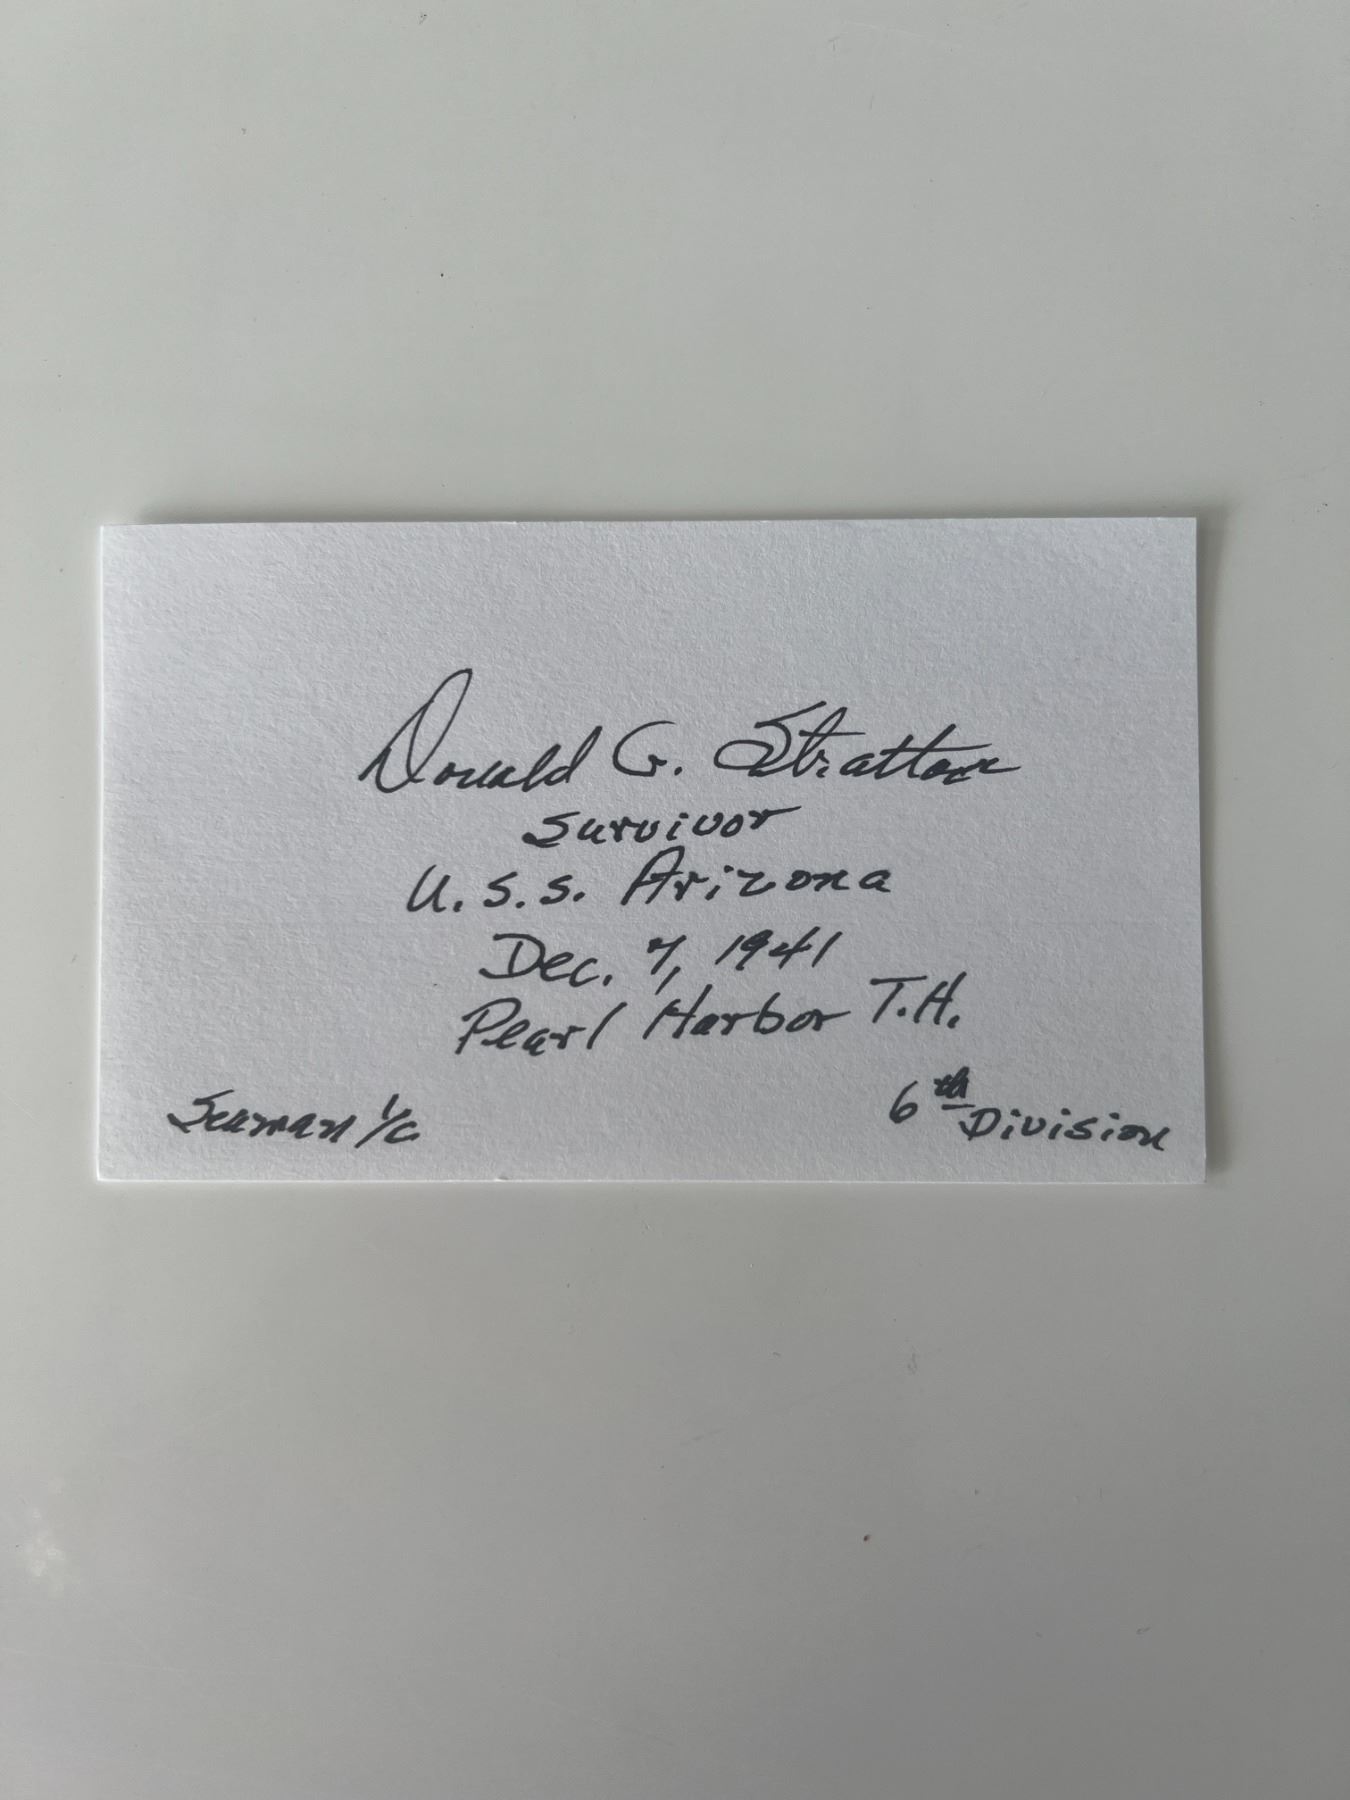 Donald G. Stratton
Survivor
U.S.S. Arizona
Dec. 7, 1941
Pearl Harbor T.H.
Seaman 1/c
6th Division